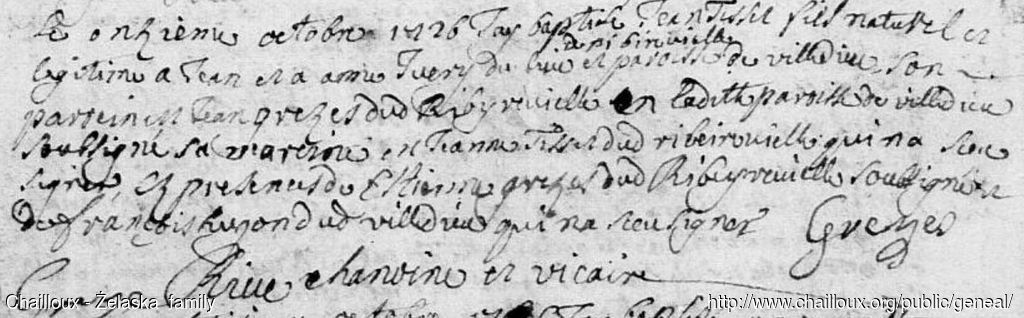 Le onzieme octobre 1726 Jay baptise Jean Tissel fils naturel et
de ribirovielle
legitime a Jean et a anne Juery du lieu et paroisse de villedieu son
parrein est Jean grezes dud Ribyrevielle en ladite paroisse de villedieu
soubsigné sa marrine est Jeanne Tissel dud ribeirevielle qui na sceu
signer et presents de Estienne grezes dud Ribeyrevielle soubsigné et
de françois hugon dud villedieu qui na sceu signer Grezes
Rieu chanoine et vicaire
octobre
Chailloux - Żelaska family
http://www.chailloux.org/public/geneal/